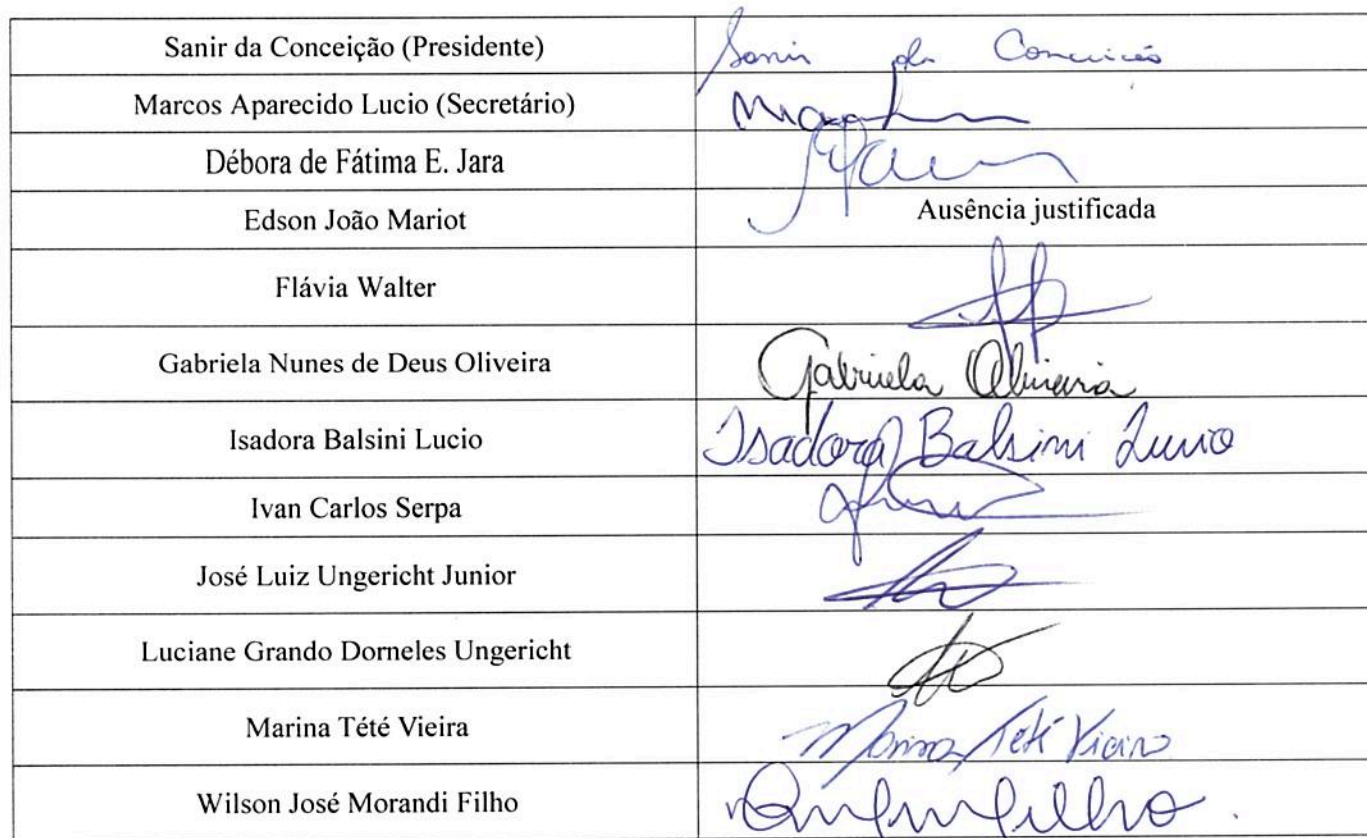 Sanir da Conceição (Presidente) Sanir da Conceicão
Marcos Aparecido Lucio (Secretário)
Débora de Fátima E. Jara
Edson João Mariot Ausência justificada
Flávia Walter
Gabriela Nunes de Deus Oliveira Gabriela Oliveira
Isadora Balsini Lucio Isadora Balsini Lucio
Ivan Carlos Serpa
José Luiz Ungericht Junior
Luciane Grando Dorneles Ungericht
Marina Tété Vieira Marina Tété Vieira
Wilson José Morandi Filho